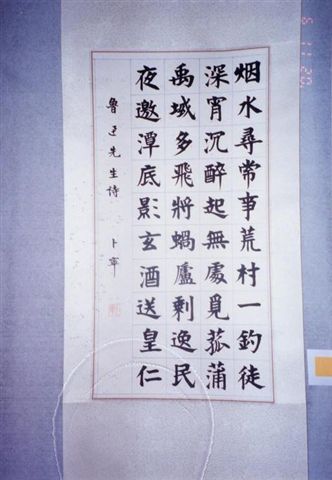 烟水尋常事荒村一釣徒
深宵沉醉起無處覓菰蒲
禹域多飛將蝸廬剩逸民
夜邀潭底影玄酒送皇仁
魯迅先生诗 卜寧